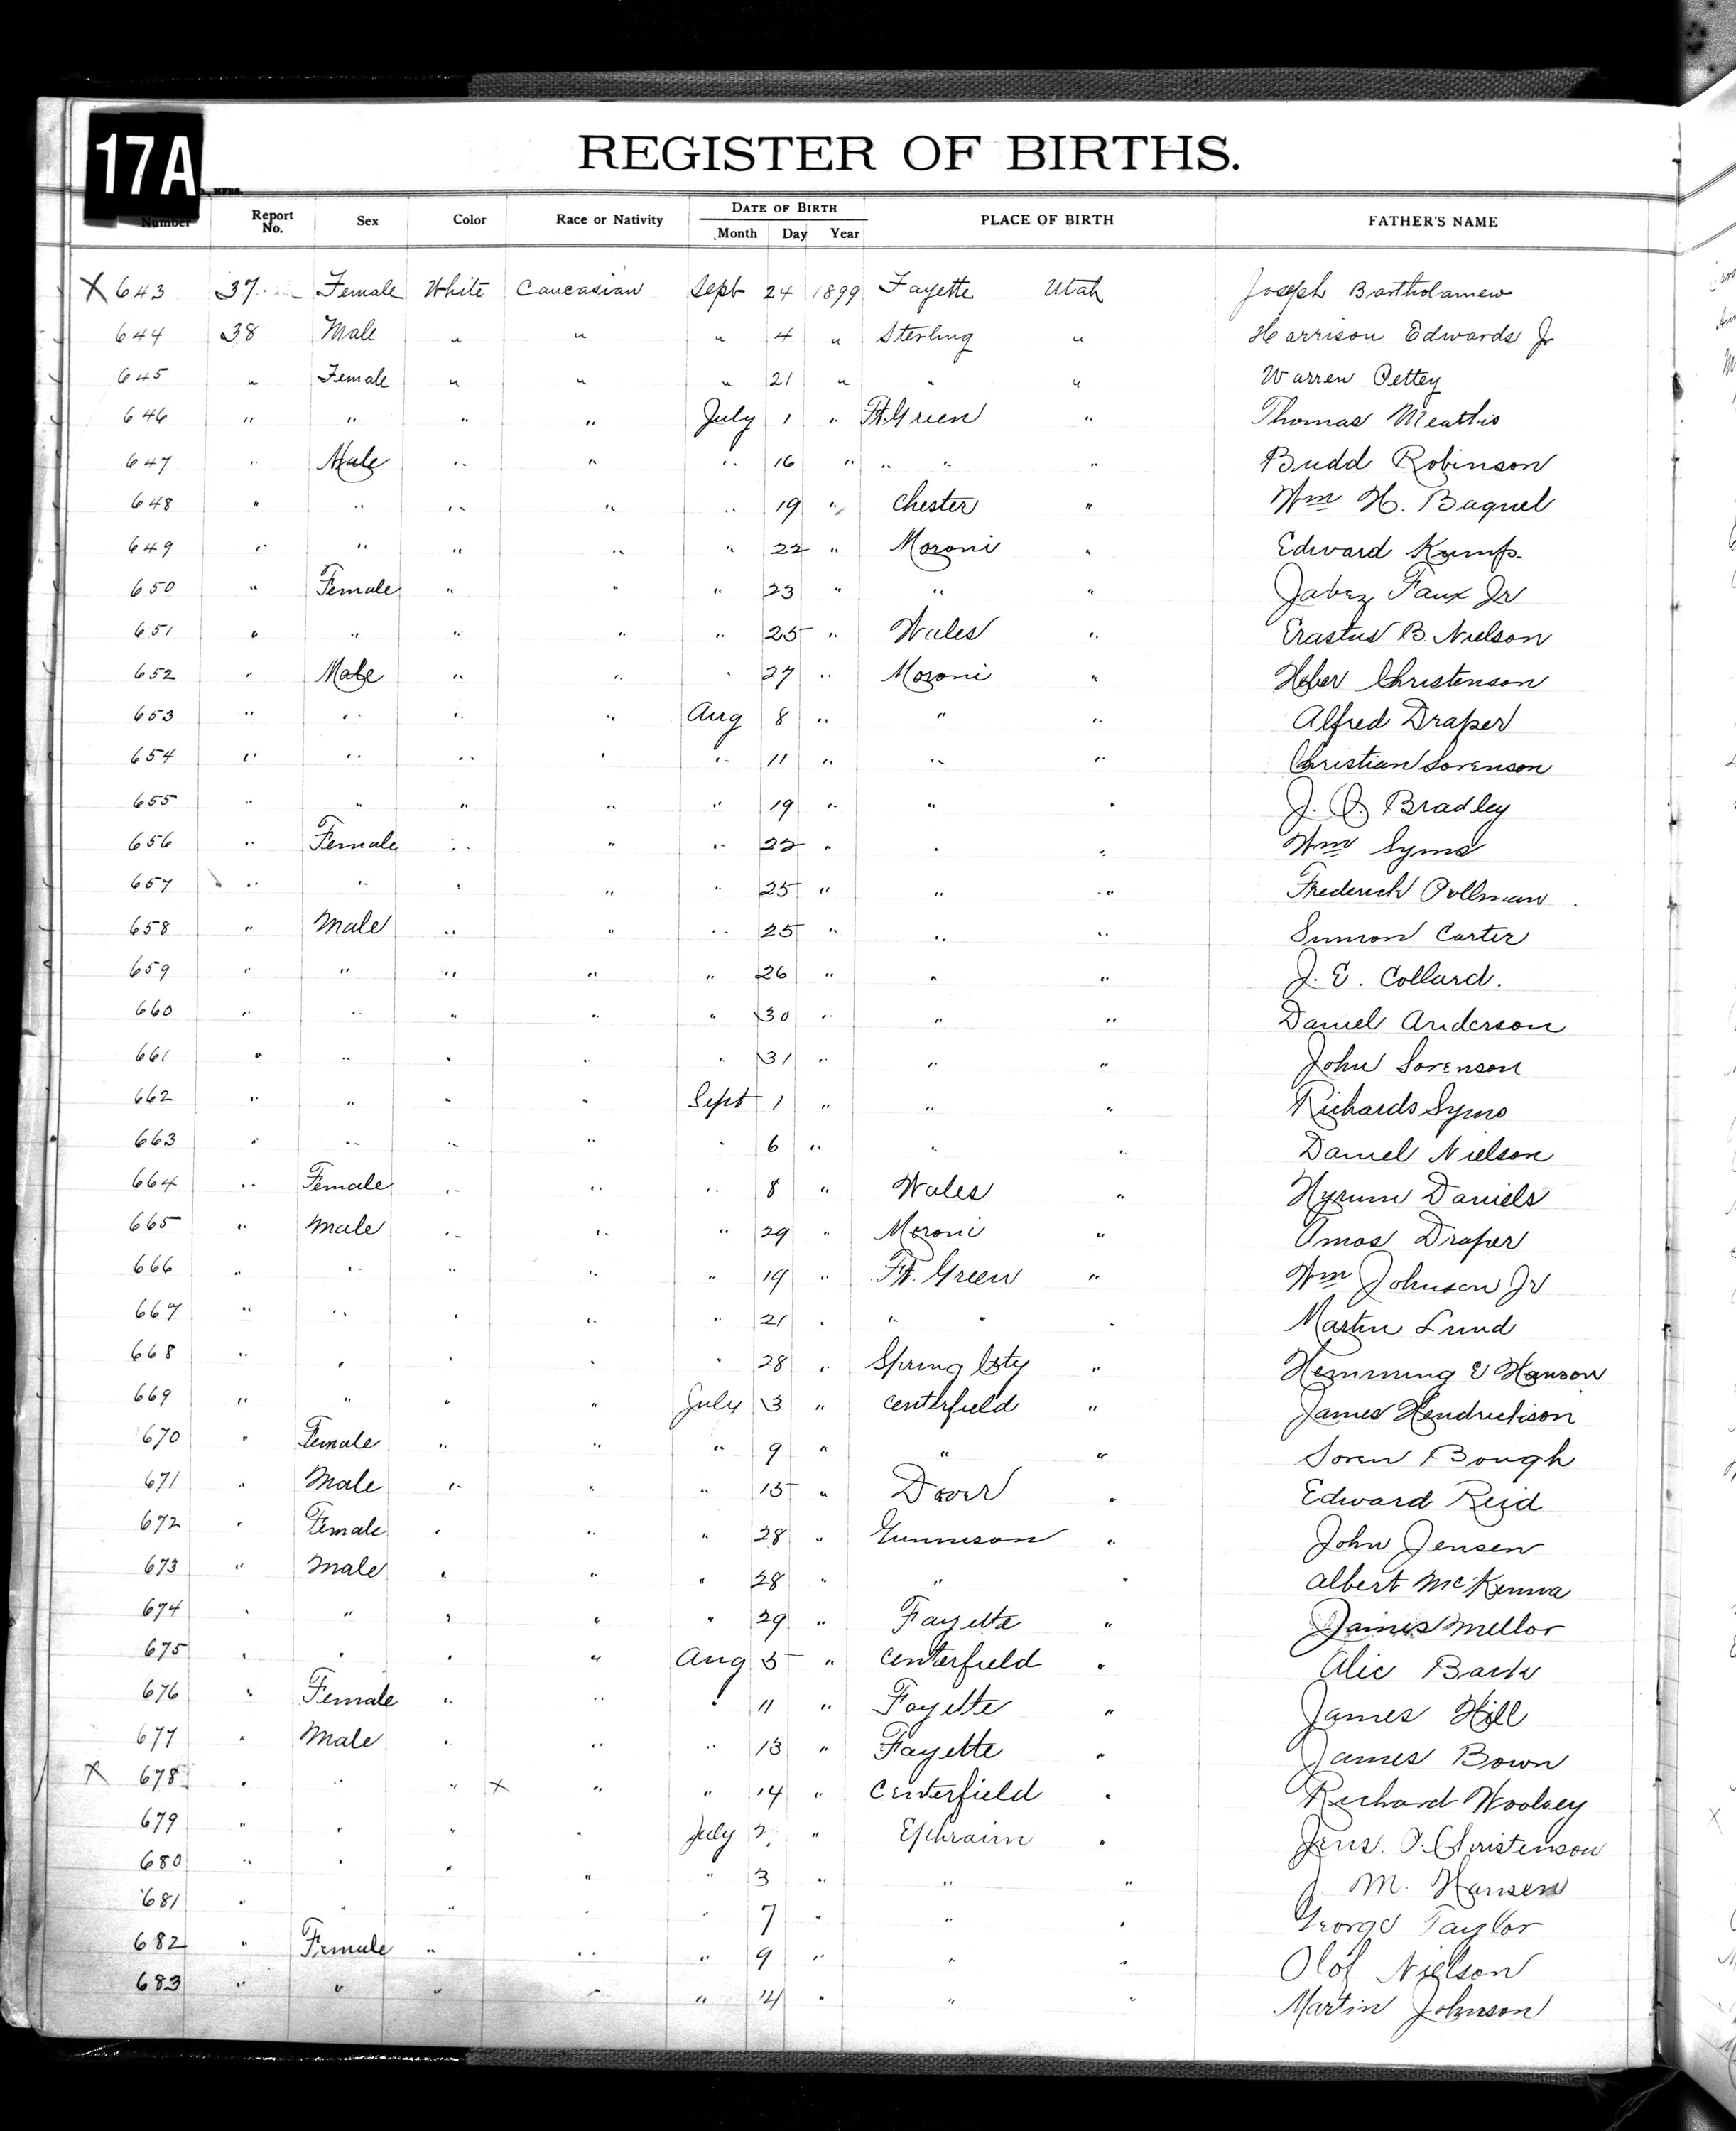 17A
REGISTER OF BIRTHS.
MFRS.
Number Report No. Sex Color Race or Nativity DATE OF BIRTH Month Day Year PLACE OF BIRTH FATHER'S NAME
X 643 37 Female White Caucasian Sept 24 1899 Fayette Utah Joseph Bartholamew
644 38 Male " " " 4 " Sterling " Harrison Edwards Jr
645 " Female " " " 21 " " " Warren Pettey
646 " " " " July 1 " Ft. Green " Thomas Meathis
647 " Male " " " 16 " " " " Budd Robinson
648 " " " " " 19 " Chester " Wm H. Bagnel
649 " " " " " 22 " Moroni " Edward Kump.
650 " Female " " " 23 " " " Jabez Faux Jr
651 " " " " " 25 " Wales " Erastus B. Nielson
652 " Male " " " 27 " Moroni " Heber Christenson
653 " " " " Aug 8 " " " Alfred Draper
654 " " " " " 11 " " " Christian Sorenson
655 " " " " " 19 " " " J. Bradley
656 " Female " " " 22 " " " Wm Syms
657 " " " " " 25 " " " Frederick Pullman
658 " Male " " " 25 " " " Simion Carter
659 " " " " " 26 " " " J. E. Collard.
660 " " " " " 30 " " " Daniel Anderson
661 " " " " " 31 " " " John Sorenson
662 " " " " Sept 1 " " " Richards Syms
663 " " " " " 6 " " " Daniel Nielson
664 " Female " " " 8 " Wales " Hyrum Daniels
665 " Male " " " 29 " Moroni " Amos Draper
666 " " " " " 19 " Ft. Green " Wm Johnson Jr
667 " " " " " 21 " " " " Martin Lund
668 " " " " " 28 " Spring City " Hemming E Hanson
669 " " " " July 3 " Centerfield " James Hendrickson
670 " Female " " " 9 " " " Soren Bough
671 " Male " " " 15 " Dover " Edward Reid
672 " Female " " " 28 " Gunnison " John Jensen
673 " Male " " " 28 " " " Albert McKenna
674 " " " " " 29 " Fayette " James Mellor
675 " " " " Aug 5 " Centerfield " Alic
676 " Female " " " 11 " Fayette " James Hill
677 " Male " " " 13 " Fayette " James Bown
X 678 " " " X " " 14 " Centerfield " Richard Woolsey
679 " " " " July 2 " Ephraim " Jens. P. Christenson
680 " " " " " 3 " " " J M. Hansen
681 " " " " " 7 " " " George Taylor
682 " Female " " " 9 " " " Olof Nielson
683 " " " " " 14 " " " Martin Johnson